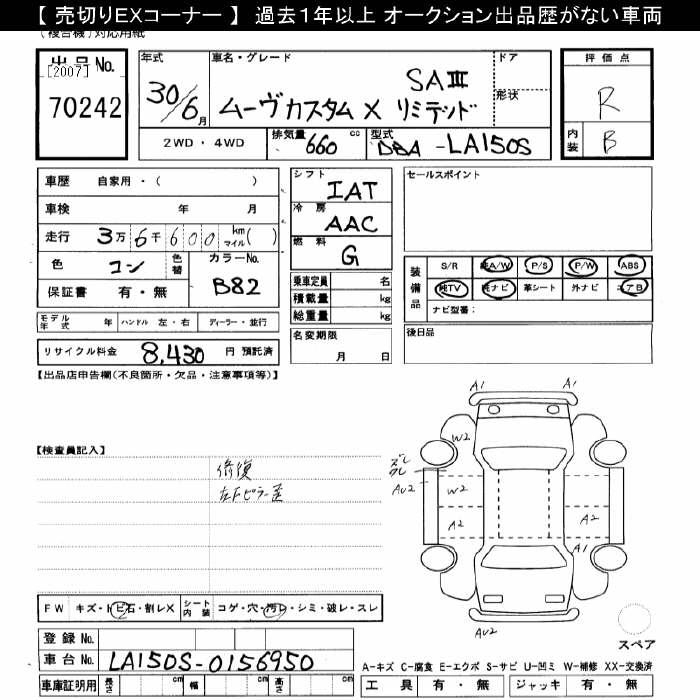 【 売切りEXコーナー 】 過去1年以上 オークション出品歴がない車両
(複合機)対応用紙
出品No.
[2007]
70242
年式
30/6月
車名・グレード
SAⅢ
ムーヴカスタム X リミテッド
ドア
形状
評価点
R
内装
B
2WD・4WD
排気量
660
cc
型式
DBA-LA150S
車歴 自家用・( )
車検 年 月
走行 3万6千600 km マイル( )
色 コン
色替
カラーNo.
B82
保証書 有・無
モデル年式 年 ハンドル 左・右 ディーラー・並行
リサイクル料金 8,430 円 預託済
シフト
IAT
冷房
AAC
燃料
G
乗車定員 名
積載量 kg
総重量 kg
名変期限
月 日
セールスポイント
装備品
S/R 純A/W P/S P/W ABS
純TV 純ナビ 革シート 外ナビ エアB
ナビ型番:
後日品
【出品店申告欄(不良箇所・欠品・注意事項等)】
【検査員記入】
修復
左Fピラー歪
A1 A1
W2
ズレ
クレ
AU2
W2
A2 A2
A1
AU2
スペア
FW キズ・トビ石・割レX
シート内装 コゲ・穴・汚レ・シミ・破レ・スレ
登録No.
車台No. LA150S-0156950
車庫証明用 長さ cm 幅 cm 高さ cm
A-キズ C-腐食 E-エクボ S-サビ U-凹ミ W-補修 XX-交換済
工具 有・無 ジャッキ 有・無